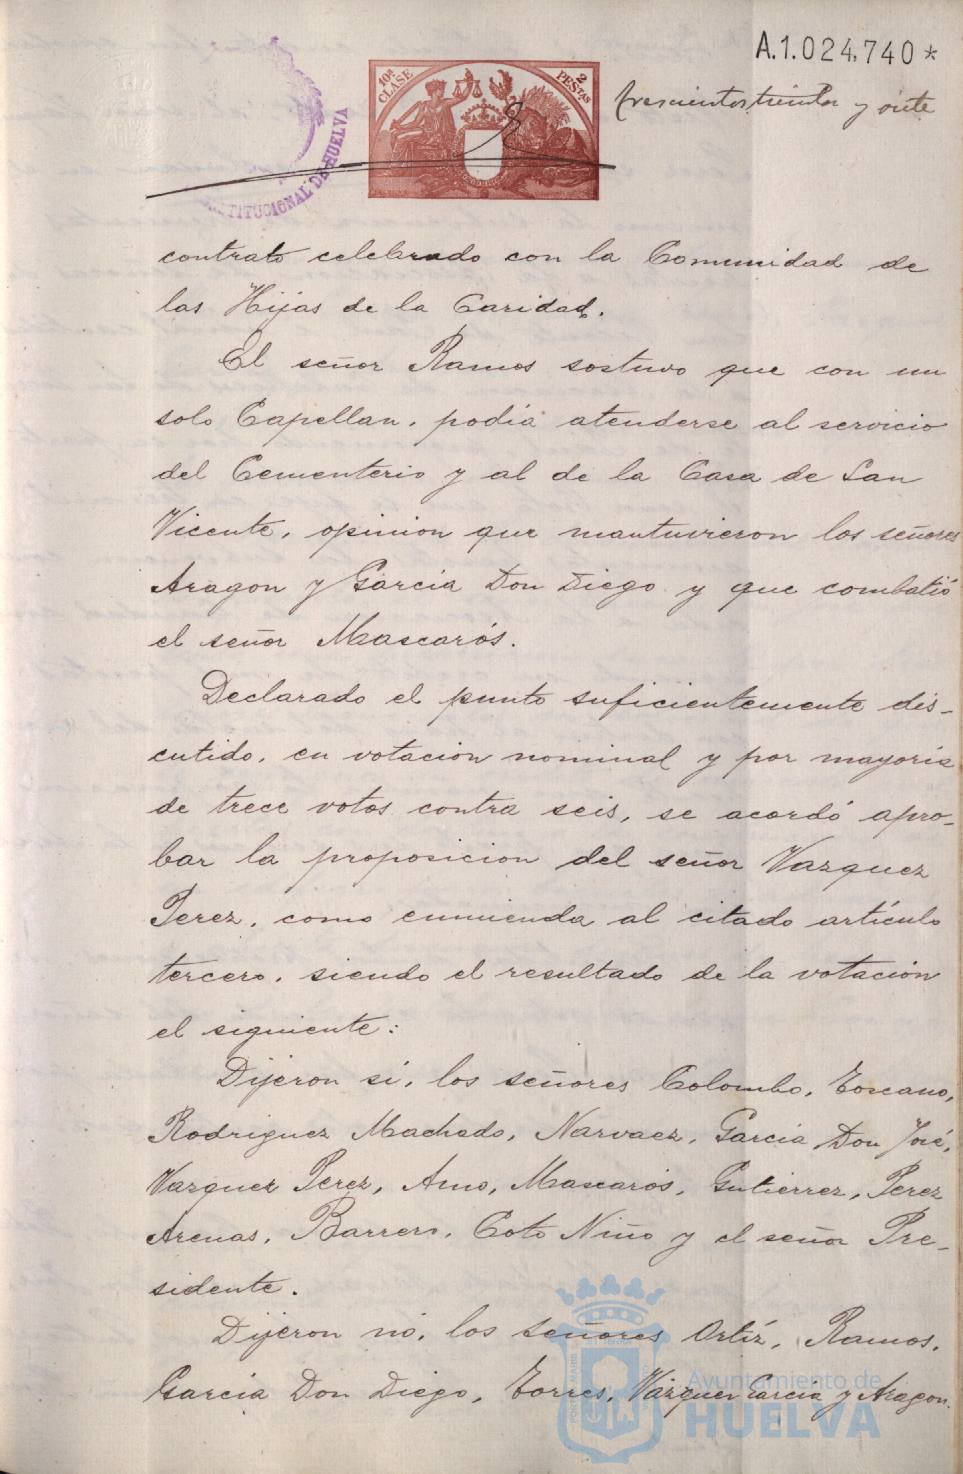 A.1.024,740*
10ª CLASE
2 PESTAS
trescientos treinta y siete
TITUCIONAL DE HUELVA
contrato celebrado con la Comunidad de
las Hijas de la Caridad.
El señor Ramos sostuvo que con un
solo Capellan, podía atenderse al servicio
del Cementerio y al de la Casa de San
Vicente, opinion que mantuvieron los señores
Aragon y García Don Diego y que combatió
el señor Mascarós.
Declarado el punto suficientemente dis-
cutido, en votacion nominal y por mayoría
de trece votos contra seis, se acordó apro-
bar la proposicion del señor Vazquez
Perez, como enmienda al citado artículo
tercero, siendo el resultado de la votacion
el siguiente:
Dijeron sí, los señores Colombo, Toscano,
Rodriguez Machado, Narvaez, García Don José,
Vazquez Perez, Amo, Mascarós, Gutierrez, Perez
Arenas, Barrero, Coto Niño y el señor Pre-
sidente.
Dijeron no, los señores Ortíz, Ramos,
García Don Diego, Torres, Vázquez García y Aragon.
Ayuntamiento de
HUELVA